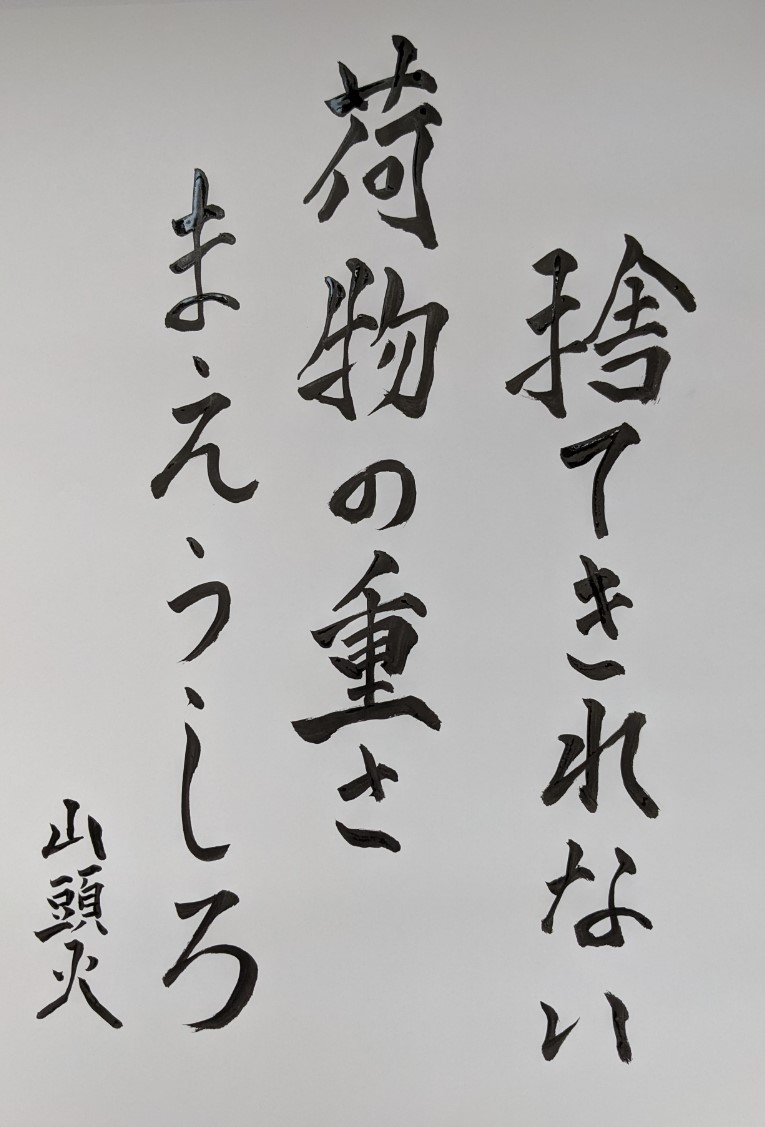 捨てきれない
荷物の重さ
まえうしろ
山頭火